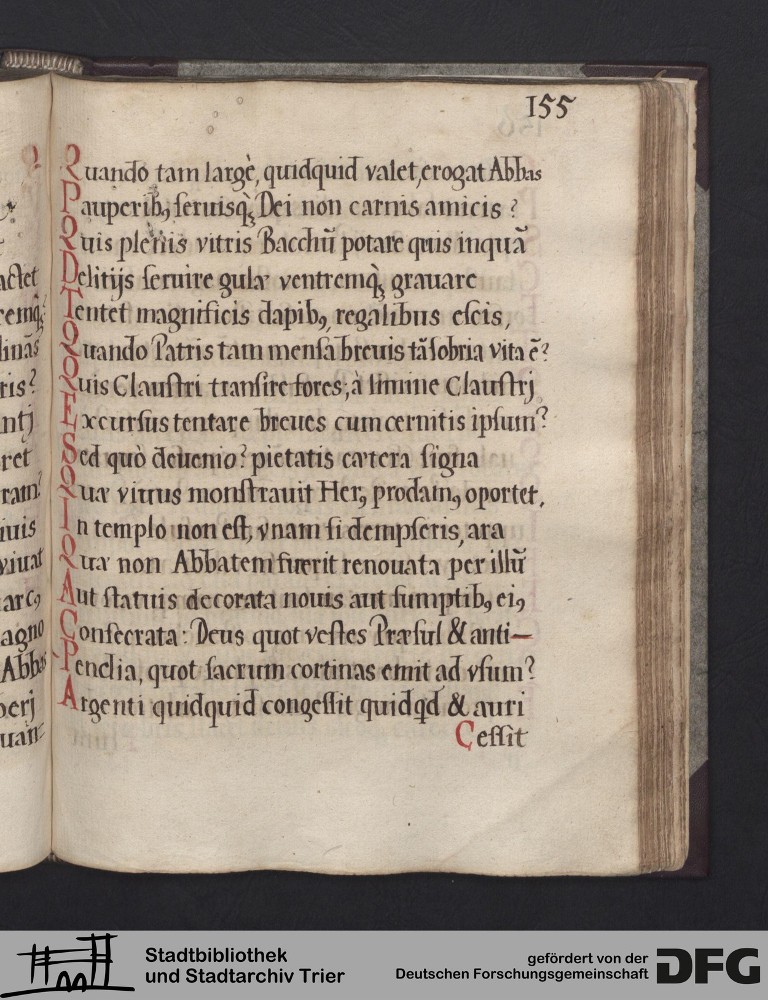 155
Quando tam largè, quidquid valet, erogat Abbas
Pauperib9, seruisq̀3 Dei non carnis amicis?
Quis plenis vitris Bacchū potare quis inquā
Delitijs seruire gulæ ventremq̀3 grauare
Tentet magnificis dapib9, regalibus escis,
Quando Patris tam mensa breuis tā sobria vita ē?
Quis Claustri transire fores, à limine Claustrj
Excursus tentare breues cum cernitis ipsum?
Sed quò deuenio? pietatis cætera signa
Quæ virtus monstrauit Her9 prodam9 oportet,
In templo non est, vnam si dempseris, ara
Quæ non Abbatem fuerit renouata per illū
Aut statuis decorata nouis aut sumptib9 ei9
Consecrata: Deus quot vestes Præsul & anti-
Pendia, quot sacrum cortinas emit ad vsum?
Argenti quidquid congessit quidqd & auri
Cessit
actet
remq̀3
linās
ris?
ntj
ret
ram?
iuis
viuat
arc9
agno
Abbas
perj
Quan=
Stadtbibliothek
und Stadtarchiv Trier
gefördert von der
Deutschen Forschungsgemeinschaft
DFG